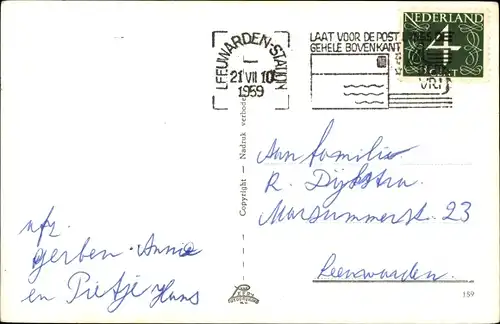 LEEUWARDEN-STATION
21 VII 10
1959
LAAT VOOR DE POST
GEHELE BOVENKANT
VRIJ
NEDERLAND
4
CENT
Aan familie
R. Dijkstra
Marssummerstr. 23
Leeuwarden.
nfz.
Gerben-Annie
en Pietje Hans
Copyright — Nadruk verboden
159